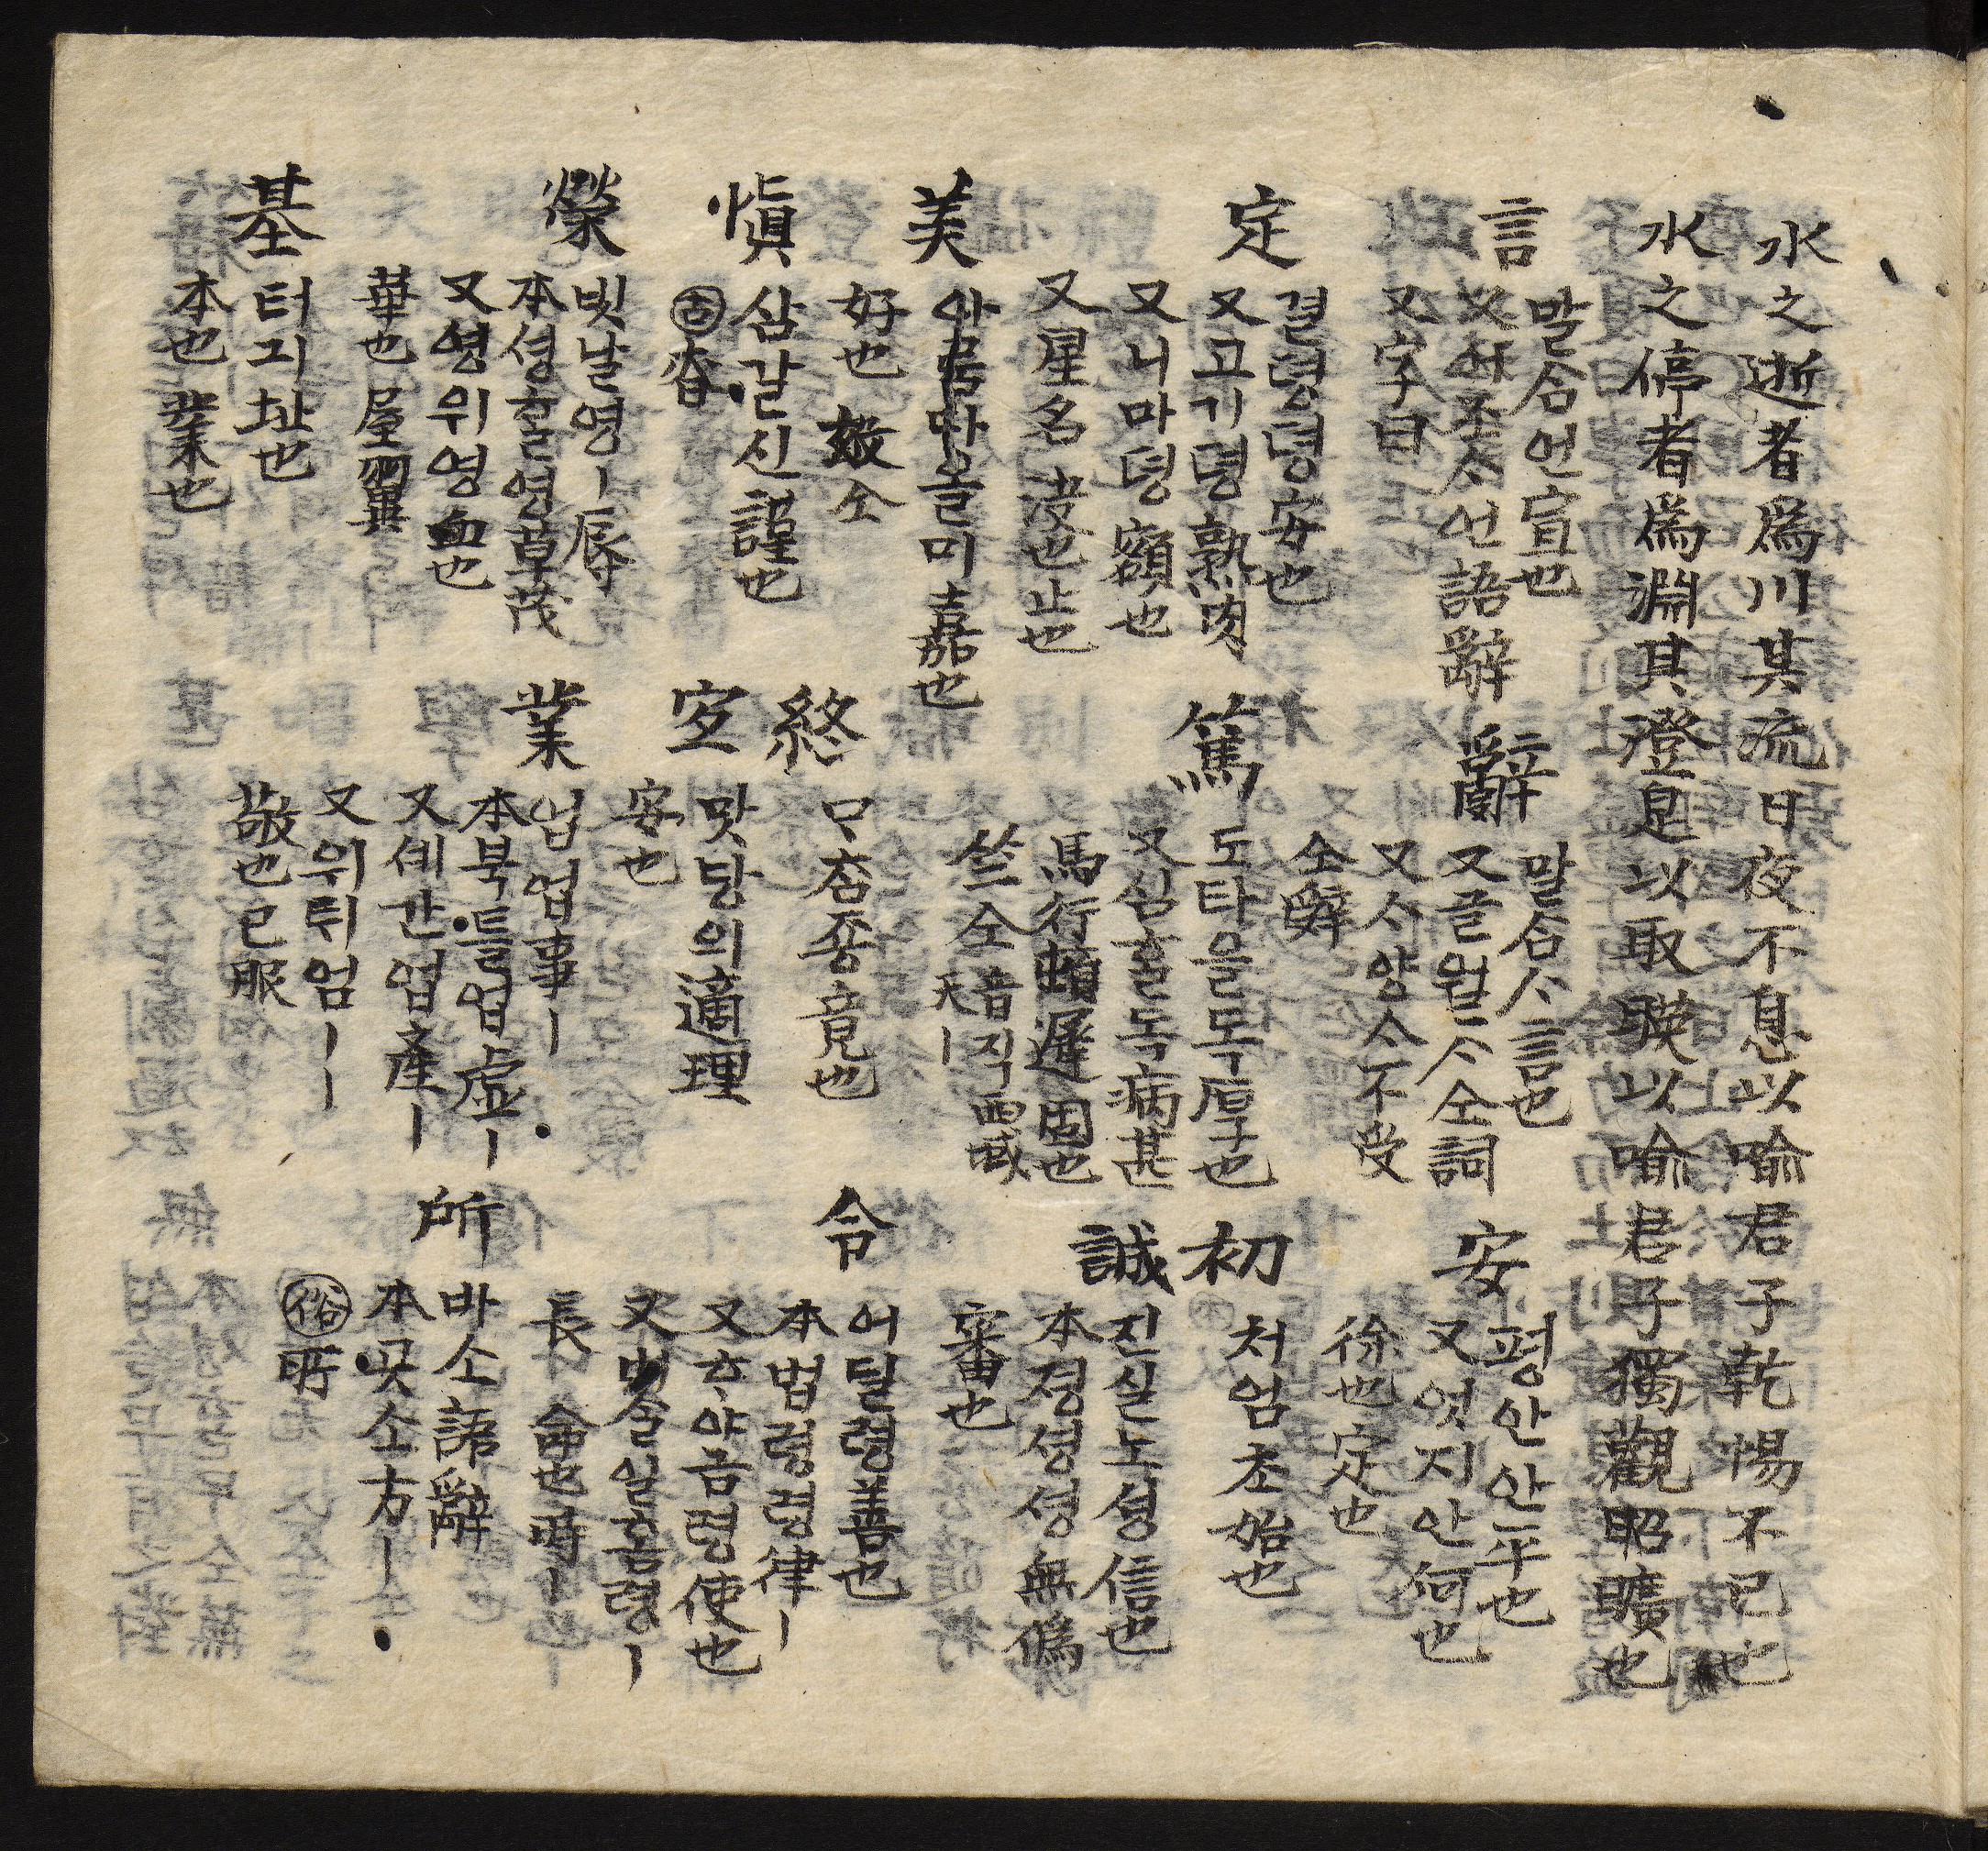 水之逝者爲川其流日夜不息以喩君子乾惕不已也
水之停者爲淵其澄足以取暎以喩君子獨觀昭曠也
言 말ᄉᆞᆷ언宣也
又어조ᄉᆞ언語辭
又字曰
辭 말ᄉᆞᆷᄉᆞ言也
又글월ᄉᆞ仝詞
又ᄉᆞ양ᄉᆞ不受
仝辤
安 평안안平也
又엇지안何也
徐也定也
定 결뎡뎡安也
又고기뎡熟肉
又니마뎡額也
又星名 淩也止也
篤 도타을독厚也
又심ᄒᆞᆯ독病甚
馬行頓遲 固也
竺仝 音직西域天ㅣ
初 처엄초始也
誠 진실노셩信也
本졍셩셩無僞
審也
美 아ᄅᆞᆷ다올미嘉也
好也 媺仝
終 ᄆᆞᄎᆞᆷ죵竟也
令 어딜령善也
本법령령律ㅣ
又ᄒᆞ야금령使也
又ᄆᆡ슬일홈령ㅣ
長 命也時ㅣ
愼 삼갈신謹也
㊀古 昚
宜 맛당의適理
安也
榮 빗날영ㅣ辱
本셩ᄒᆞᆯ영草茂
又영위영血也
華也 屋翼
業 업업事ㅣ
本북틀업虛ㅣ
又셰간업産ㅣ
又위틔업ㅣㅣ
敬也已服
所 바소語辭
本곳소方ㅣ
俗 㪽
基 터긔址也
本也 業也